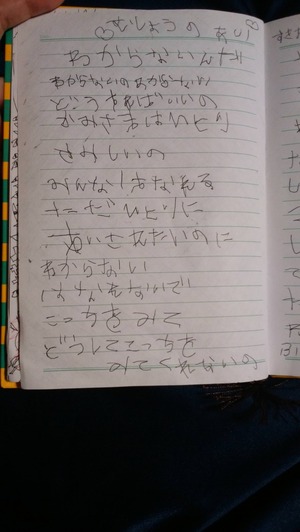 むしょうの あい
わからないんだ
わからないのわからない
どうすればいいの
かみさまはひとり
さみしいの
みんなしあわせる
ただひとりに
あいされたいのに
わからない
はなれないで
こっちをみて
どうしてこっちを
みてくれないの